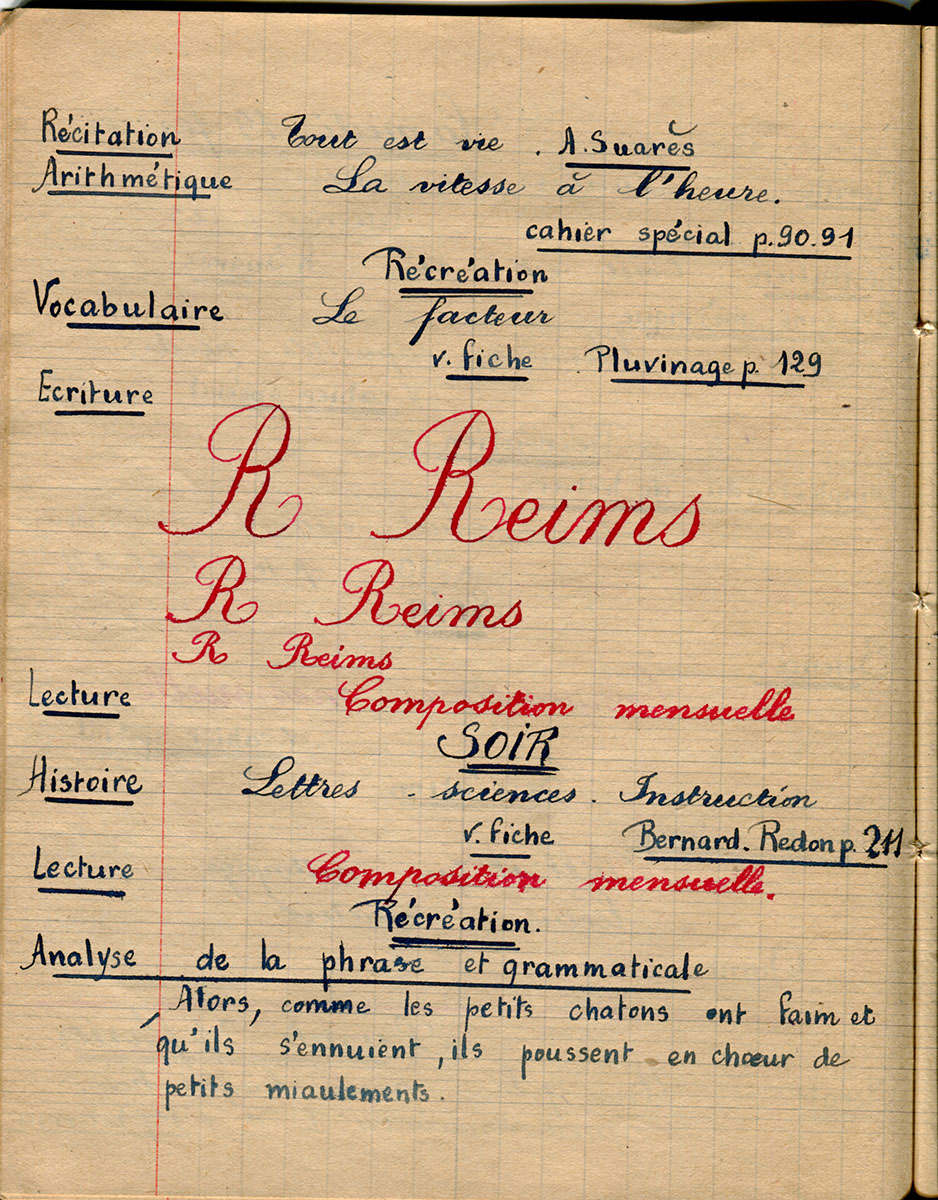 Récitation Tout est vie. A. Suarès
Arithmétique La vitesse à l'heure.
cahier spécial p.90.91
Récréation
Vocabulaire Le facteur
v. fiche Pluvinage p. 129
Ecriture
R Reims
R Reims
R Reims
Lecture Composition mensuelle
SOIR
Histoire Lettres - sciences - Instruction
v. fiche Bernard. Redon p. 211
Lecture Composition mensuelle.
Récréation.
Analyse de la phrase et grammaticale
Alors, comme les petits chatons ont faim et
qu'ils s'ennuient, ils poussent en chœur de
petits miaulements.